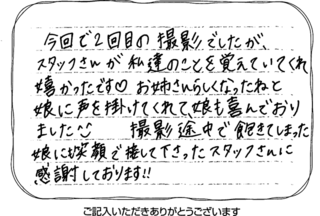 今回で2回目の撮影でしたが、
スタッフさんが私達のことを覚えていてくれ
嬉かったです♡ お姉さんらしくなったねと
娘に声を掛けてくれて娘も喜んでおり
ました 撮影途中で飽きてしまった
娘に笑顔で接して下さったスタッフさんに
感謝しております!!
ご記入いただきありがとうございます